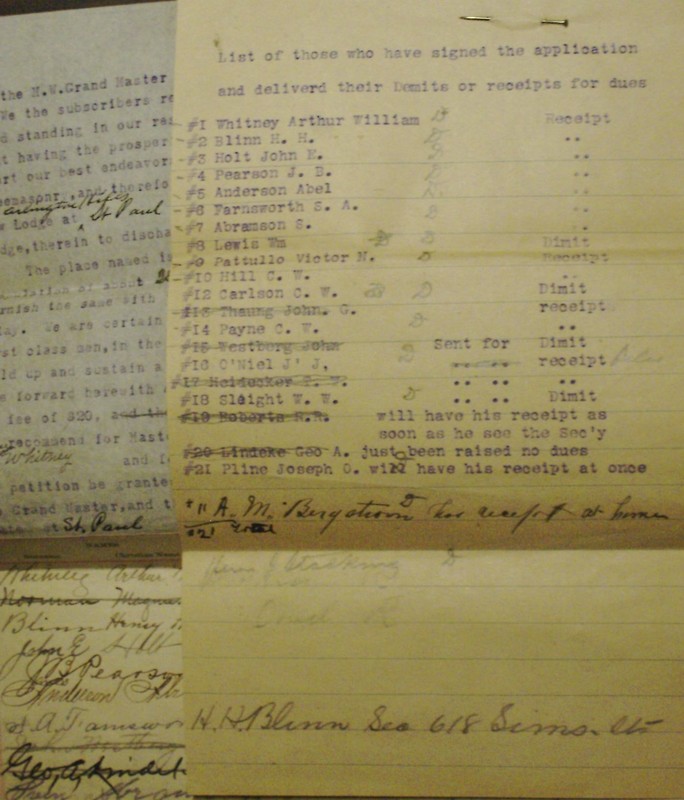 the M.W.Grand Master
We the subscribers re
d standing in our re
t having the prosper
rt our best endeavor
eemasonr ,and therefo
arlington Hills
w Lodge at St Paul
dge,therein to discha
The place named i
of about
rnish the same with
ay. We are certain
st class men,in the
ld up and sustain a
e forward herewith
ise of $20, and the
recommend for Mast
Whitney and f
petition be grante
Grand Master,and t
St. Paul
List of those who have signed the application
and deliverd their Demits or receipts for dues
#1 Whitney Arthur William D Receipt
#2 Blinn H. H. D ..
#3 Holt John E. ..
#4 Pearson J. B. D ..
#5 Anderson Abel D ..
#6 Farnsworth S. A. D ..
#7 Abramson S. ..
#8 Lewis Wm D Dimit
#9 Pattullo Victor N. D Receipt
#10 Hill C. W. ..
#12 Carlson C. W. D Dimit
#13 Thaung John. G. receipt
#14 Payne C. W. D ..
#15 Westberg John Sent for Dimit
#16 O'Niel J' J, D .. .. receipt
#17 Heidecker T. W. .. .. ..
#18 Sleight W. W. D .. .. Dimit
#19 Roberts R.R. will have his receipt as
soon as he see the Sec'y
#20 Lindeke Geo A. just been raised no dues
#21 Pline Joseph O. will have his receipt at once
"11 A. M. Bergstrom D has receipt at home
D
H.H.Blinn Sec 618 Sims. St
Whitney Arthur
Norman Magnu
Blinn Henry H
John E Holt
J B Pearson
Anderson
S. A. Farnswor
Geo, A, Lindek